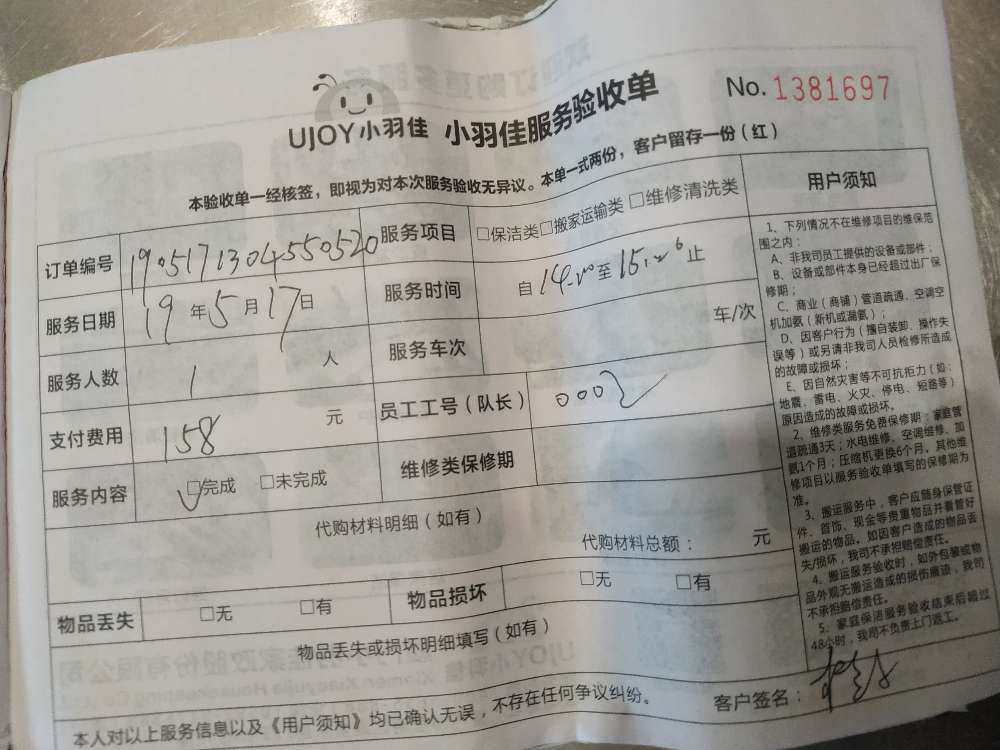 No. 1381697
UJOY小羽佳 小羽佳服务验收单
本验收单一经核签，即视为对本次服务验收无异议。本单一式两份，客户留存一份（红）
订单编号 1905171304550520 服务项目 □保洁类□搬家运输类 □维修清洗类
服务日期 19年5月17日 服务时间 自14:00至15:20止
服务人数 1 人 服务车次 车/次
支付费用 158 元 员工工号（队长） 0002
服务内容 □完成 □未完成 维修类保修期
代购材料明细（如有）
代购材料总额： 元
物品丢失 □无 □有 物品损坏 □无 □有
物品丢失或损坏明细填写（如有）
本人对以上服务信息以及《用户须知》均已确认无误，不存在任何争议纠纷。 客户签名：
用户须知
1、下列情况不在维修项目的维保范
围之内：
A、非我司员工提供的设备或部件；
B、设备或部件本身已经超过出厂保
修期；
C、商业（商铺）管道疏通、空调空
机加氨（新机或漏氨）；
D、因客户行为（擅自装卸、操作失
误等）或另请非我司人员检修所造成
的故障或损坏；
E、因自然灾害等不可抗拒力（如：
地震、雷电、火灾、停电、短路等）
原因造成的故障或损坏。
2、维修类服务免费保修期：家庭管
道疏通3天；水电维修、空调维修、加
氨1个月；压缩机更换6个月。其他维
修项目以服务验收单填写的保修期为
准。
3、搬运服务中，客户应随身保管证
件、首饰、现金等贵重物品并看管好
搬运的物品。如因客户造成的物品丢
失/损坏，我司不承担赔偿责任。
4、搬运服务验收时，如外包装或物
品外观无搬运造成的损伤痕迹，我司
不承担赔偿责任。
5、家庭保洁服务验收结束后超过
48小时，我司不负责上门返工。